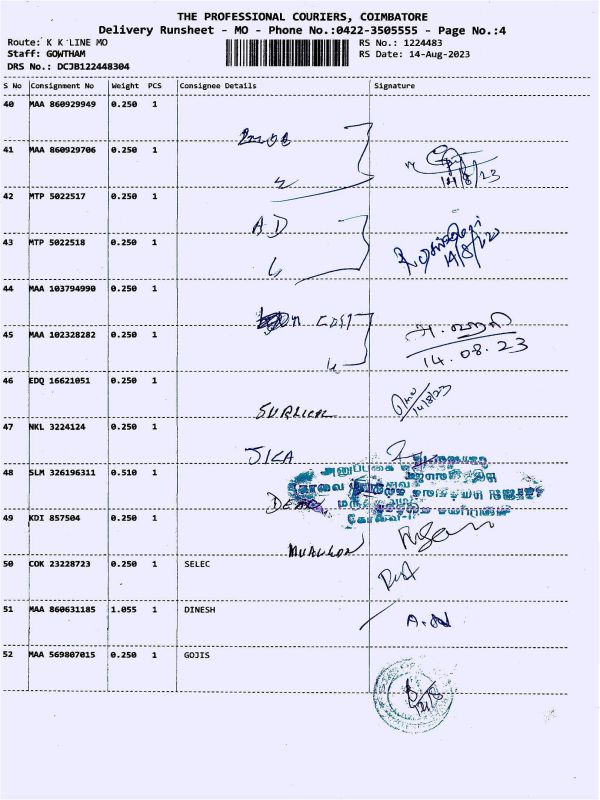 THE PROFESSIONAL COURIERS, COIMBATORE
Delivery Runsheet - MO - Phone No.:0422-3505555 - Page No.:4
Route: K K LINE MO RS No.: 1224483
Staff: GOWTHAM RS Date: 14-Aug-2023
DRS No.: DCJB122448304
S No Consignment No Weight PCS Consignee Details Signature
40 MAA 860929949 0.250 1
41 MAA 860929706 0.250 1
14/8/23
42 MTP 5022517 0.250 1
AD
43 MTP 5022518 0.250 1
14/8/
44 MAA 103794990 0.250 1
COST
45 MAA 102328282 0.250 1
14.08.23
46 EDQ 16621051 0.250 1
14/8/23
SURLICAL
47 NKL 3224124 0.250 1
JICA
48 SLM 326196311 0.510 1
49 KDI 857504 0.250 1
50 COK 23228723 0.250 1 SELEC
51 MAA 860631185 1.055 1 DINESH
52 MAA 569807015 0.250 1 GOJIS